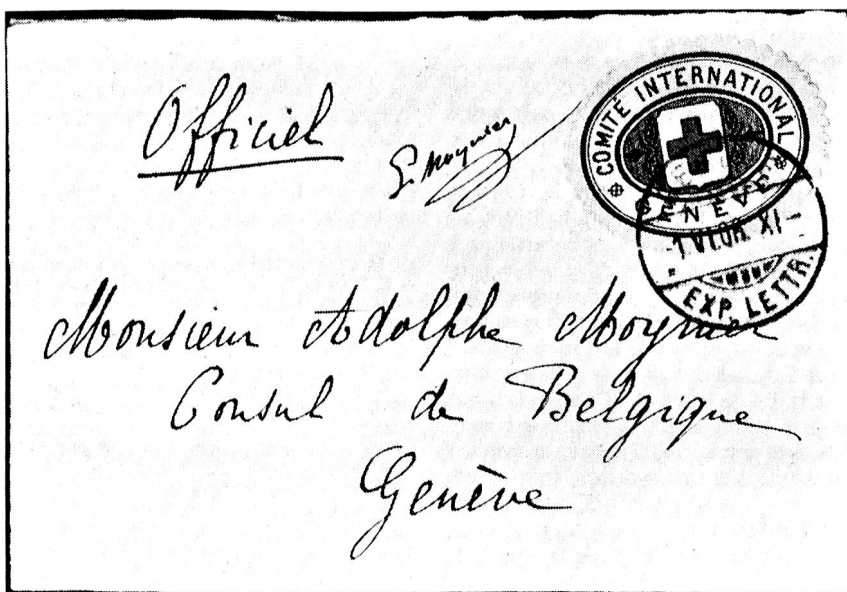 Officiel
G. Moynier
COMITÉ INTERNATIONAL
GENÈVE
EXP. LETTR.
Monsieur Adolphe Moynier
Consul de Belgique
Genève